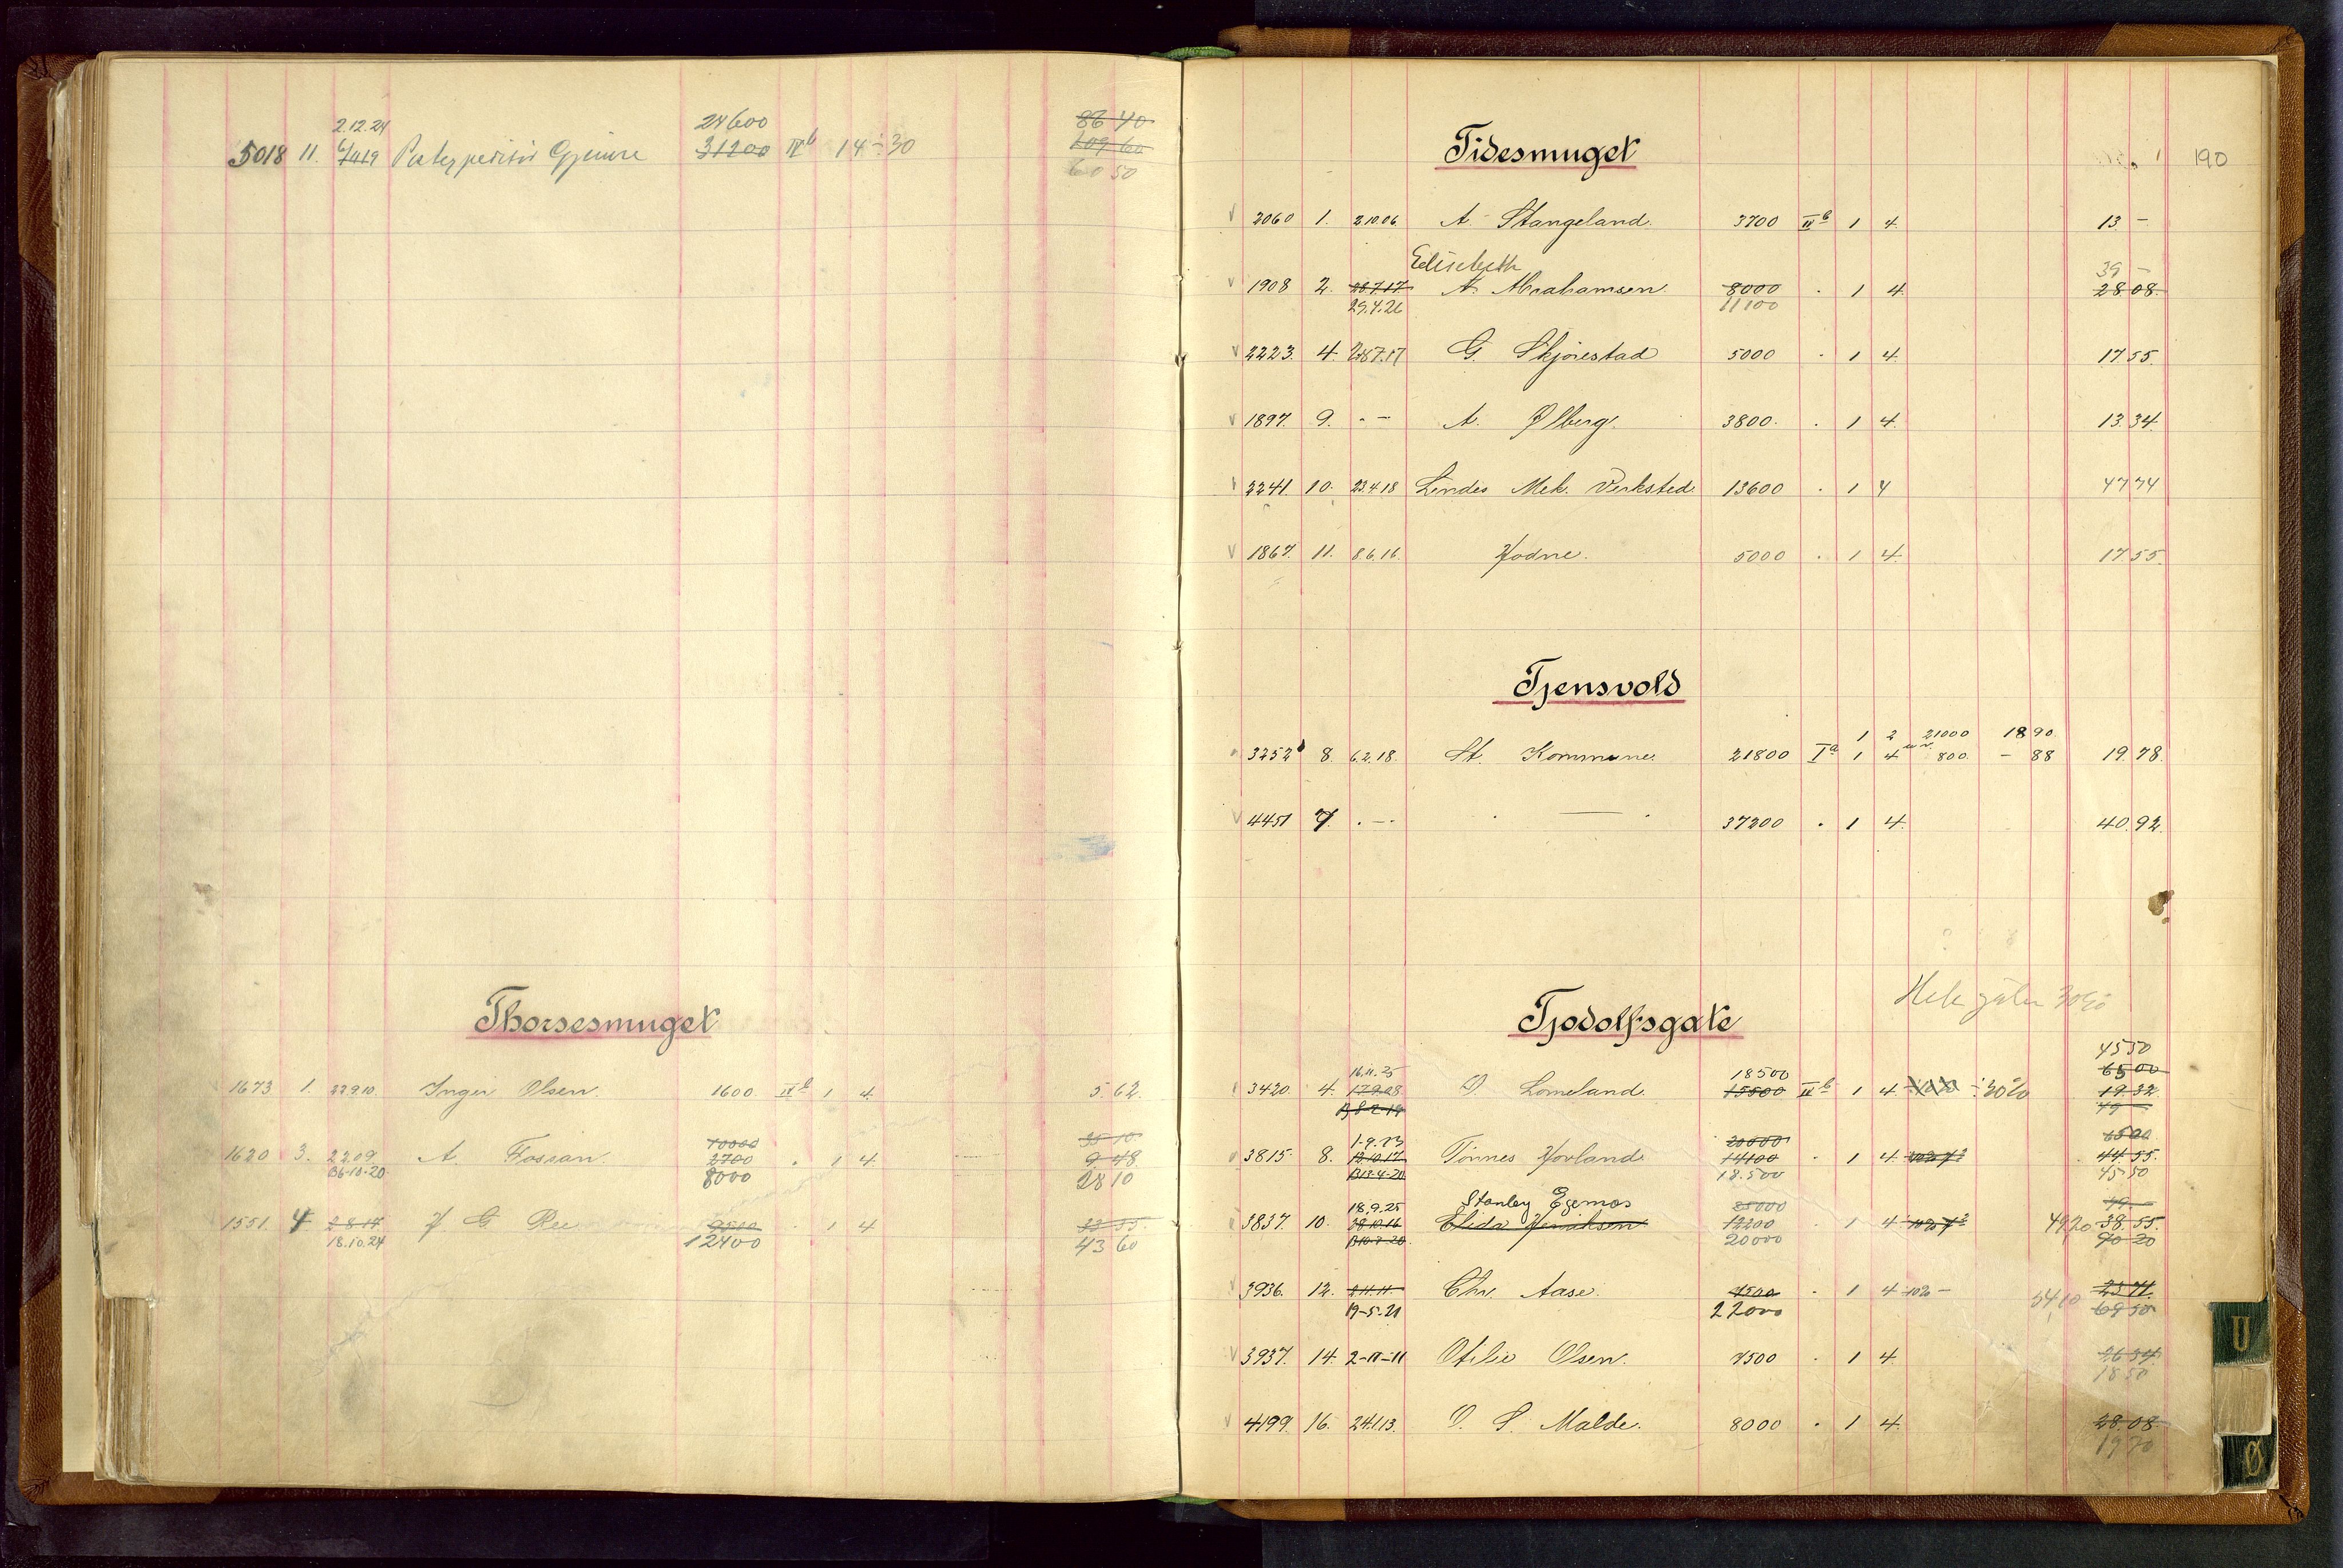 2.12.24 24600 86 40
5018 11. 31200 IV b 14 ÷ 30 109 60
60 50
Thorsesmuget
1673 1. 27.9.10. Inger Olsen. 1600 IV b 1 4. 5. 62.
10000 35 10
1620 3. 22.09 A. Fossan. 2700 . 1 4. 9 48
B6-10-20 8000 28 10
1551. 4 2.8.17 J. G. Ree 9500 . 1 4 33 35.
18.10.24 12400 43 60
Tidesmuget 190
2060 1. 2.10.06. A. Stangeland. 3700 IV b 1 4. 13 -
Elisabeth 39 -
1908 2. 28.7.17 A. Abrahamsen 8000 . 1 4. 28.08.
29.4.26 11100
2223. 4. 28.7.17 G. Skjørestad 5000 . 1 4. 17.55.
1897. 9. - - A. Ølberg. 3800. . 1 4. 13.34
2241. 10. 23.4.18 Lindes Mek. Verksted. 13600 . 1 4 47 74
1867. 11. 8.6.16. Hodne. 5000 . 1 4. 17.55.
Tjensvold
1 2 21000 18 90.
3252 8. 6.2.18. St. Kommune. 21800 I a 1 4 800. - 88 19.78.
4451 7. . - . . — . 37200 . 1 4. 40.92.
Tjodolfsgate
45 50
16.11.25 18500 65 00
3420. 4. 17.9.08 O. Lomeland. 15500 IV b 1 4 ÷ 30% 19.32
49 -
1-9.23 20000 65 00
3815. 8. 12.10.17 Tønnes Hovland. 14100 . 1 4. 44 55.
B13-4-20 18.500 45 50
18.9.25 Stanley Egemos 25000 49. -
3837. 10. 28.10.16 Elida Henriksen 12200 . 1 4 49,20 38.55.
B10.7.20. 20000 70 20
3936. 12. 2.11.11. Chr. Aase. 7500 . 1 4 10% - 54,10
19-5-21 22000
3937. 14. 2-11-11 Otilie Olsen. 7500 . 1 4. 26 34
18 50
4199. 16. 24.1.13. O. S. Malde. 8000 . 1 4. 28.08.
19 70
U
Ø